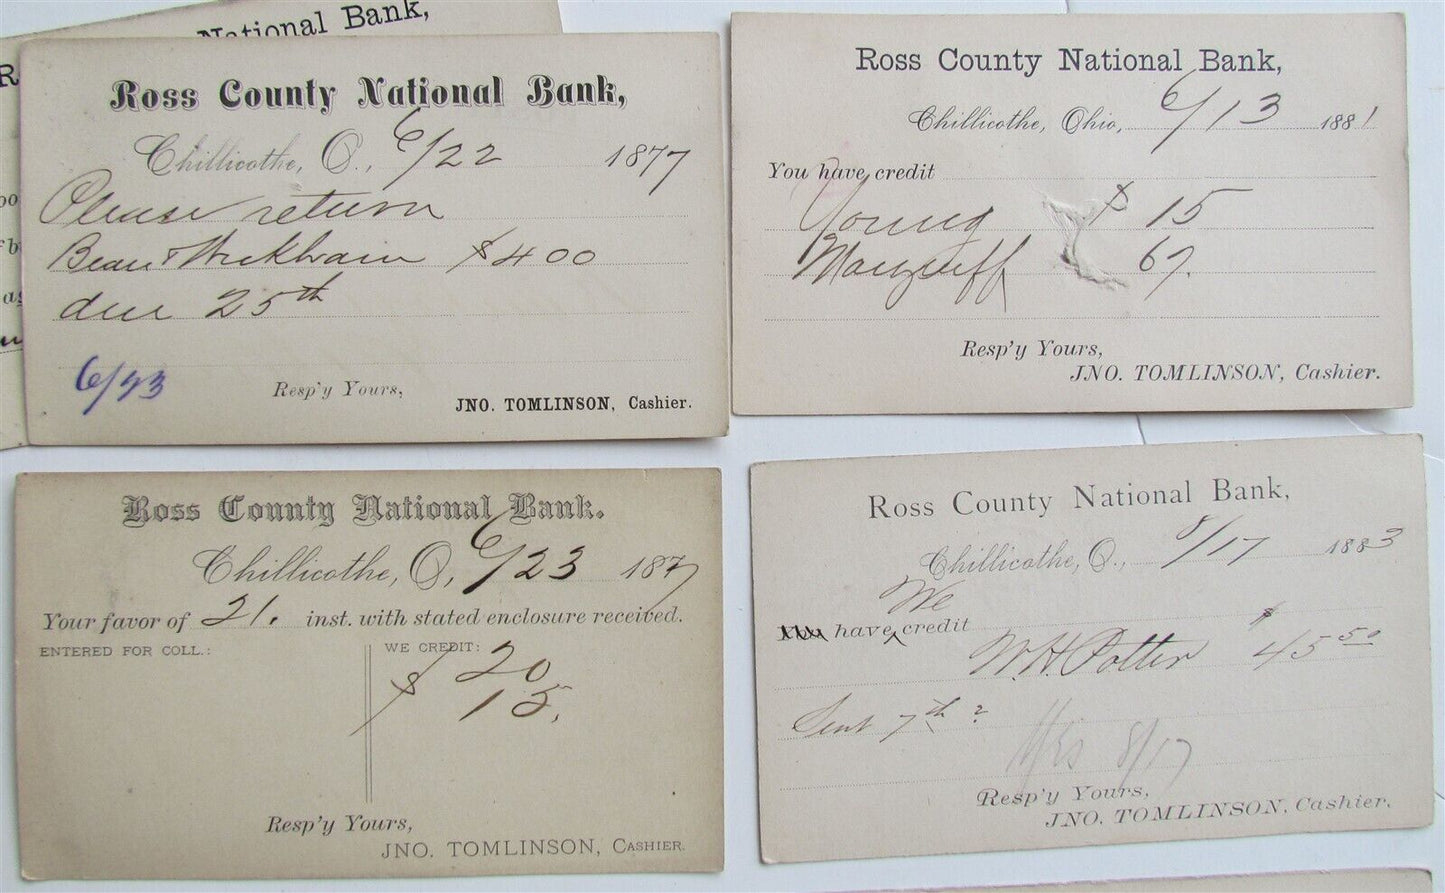 National Bank,
Ross County National Bank,
Chillicothe, O., 6/22 1877
Please return
Bean & Wickham $400
due 25th
6/23
Resp'y Yours,
JNO. TOMLINSON, Cashier.
Ross County National Bank,
Chillicothe, Ohio, 6/13 1881
You have credit
Young $ 15
67.
Resp'y Yours,
JNO. TOMLINSON, Cashier.
Ross County National Bank.
Chillicothe, O, 6/23 1877
Your favor of 21. inst. with stated enclosure received.
ENTERED FOR COLL.:
WE CREDIT:
$ 20
15.
Resp'y Yours,
JNO. TOMLINSON, CASHIER.
Ross County National Bank,
Chillicothe, O., 8/17 1883
We
have credit
W.H. Potter $45 50
Sent 7th ?
Yes 8/17
Resp'y Yours,
JNO. TOMLINSON, Cashier.